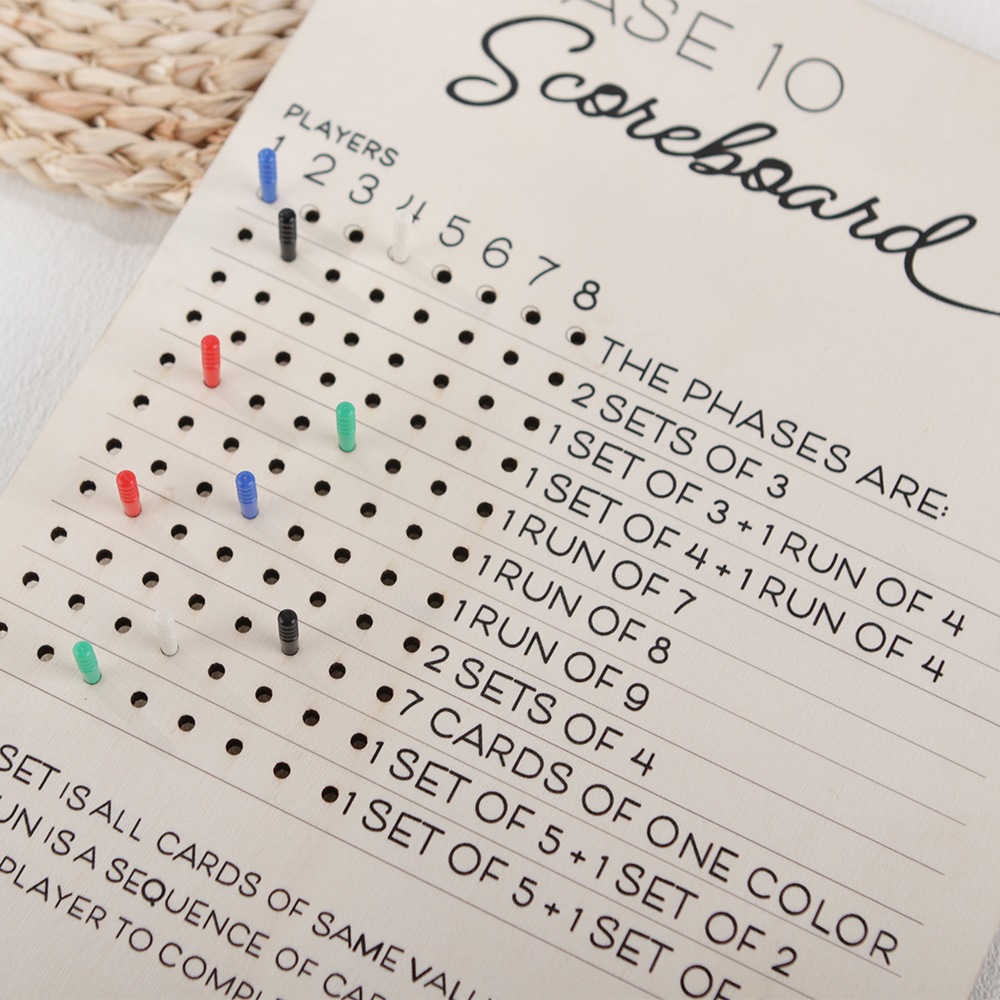 ASE 10
Scoreboard
PLAYERS
1 2 3 4 5 6 7 8
THE PHASES ARE:
2 SETS OF 3
1 SET OF 3 + 1 RUN OF 4
1 SET OF 4 + 1 RUN OF 4
1 RUN OF 7
1 RUN OF 8
1 RUN OF 9
2 SETS OF 4
7 CARDS OF ONE COLOR
1 SET OF 5 + 1 SET OF 2
1 SET OF 5 + 1 SET OF
SET IS ALL CARDS OF SAME VALU
UN IS A SEQUENCE OF CAR
PLAYER TO COMPL